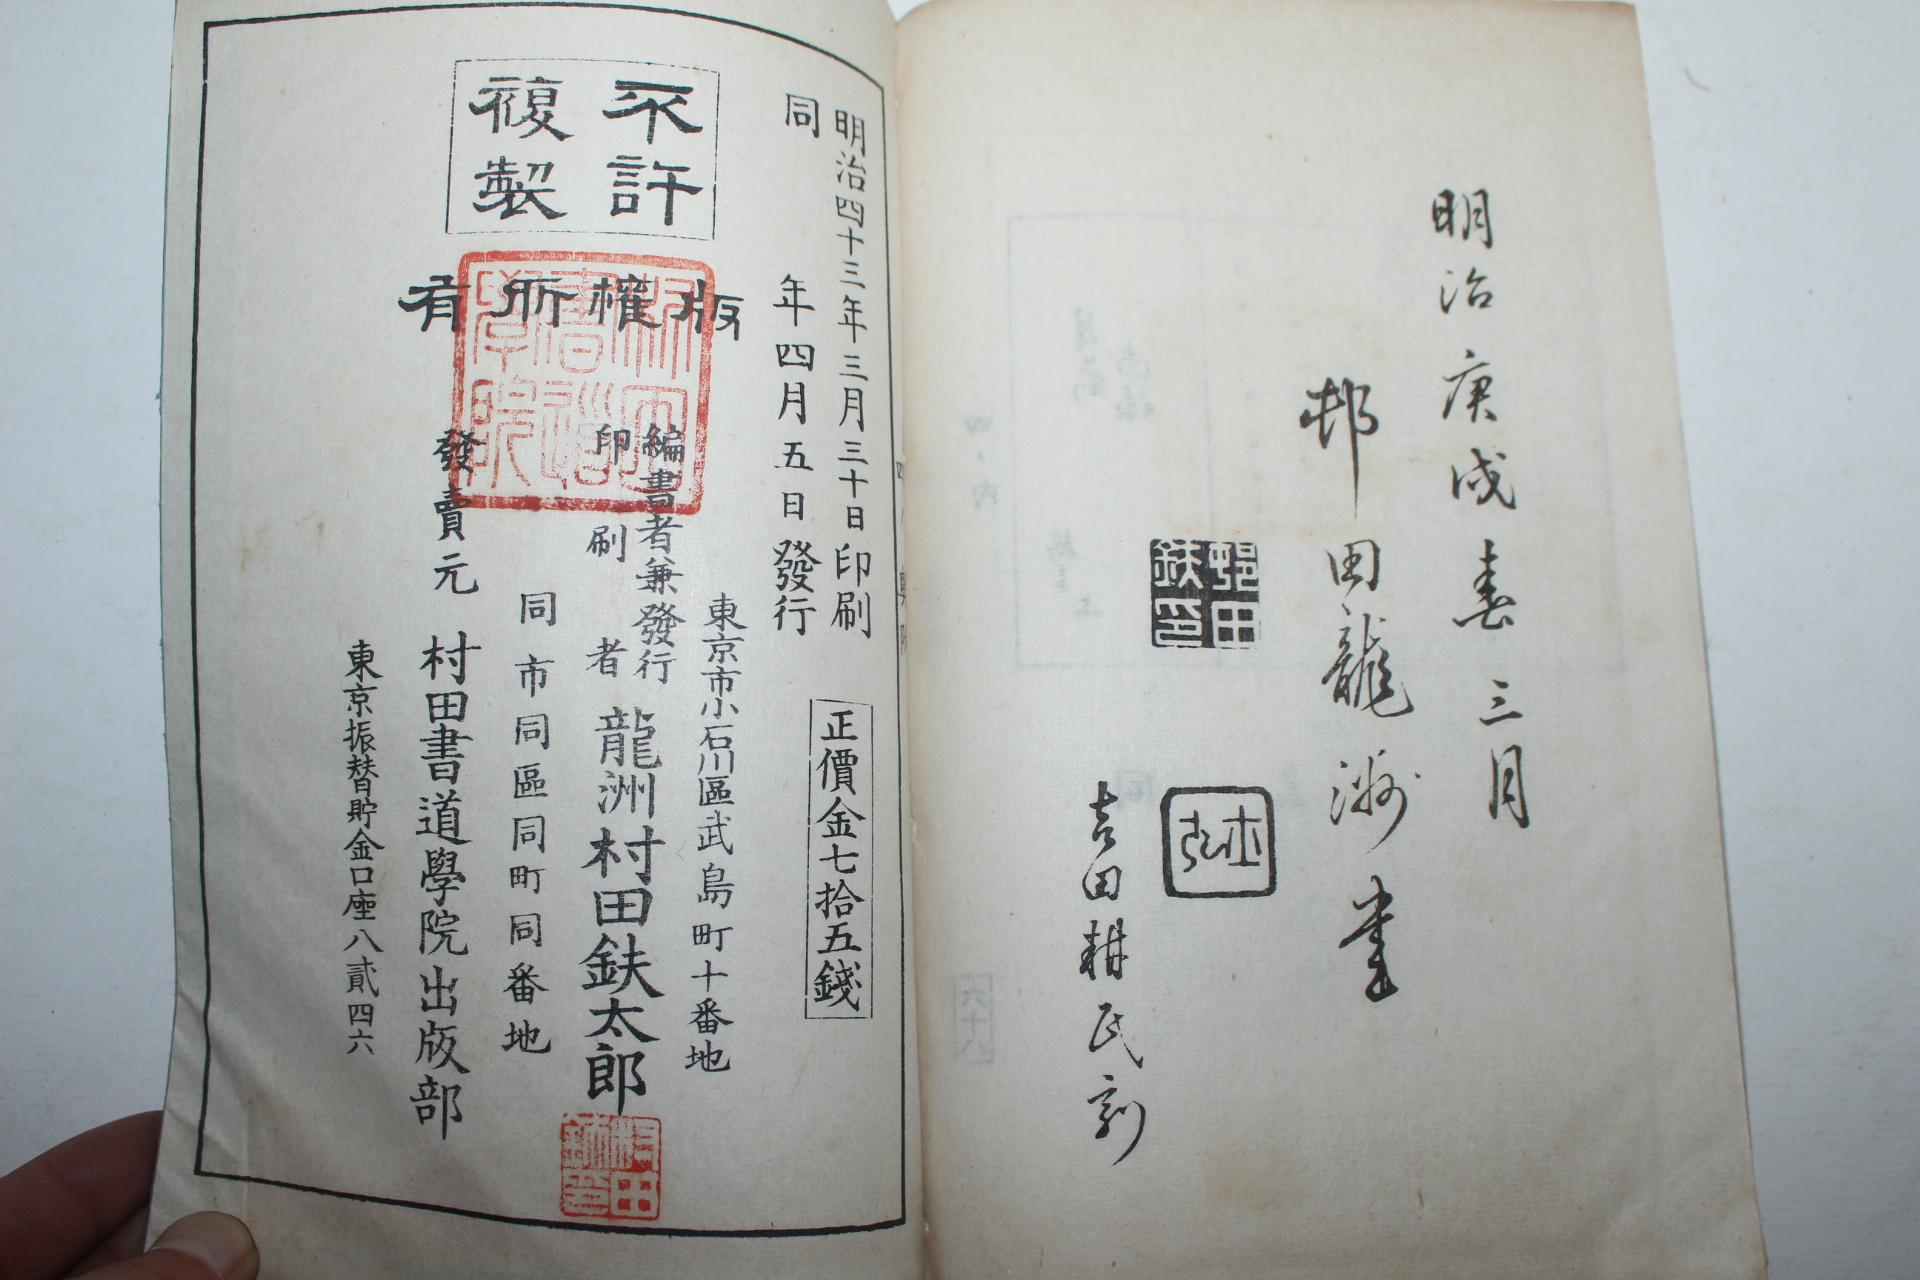 明治庚戌春三月
邨田龍洲書
邨田鉄印
吉田耕民刻
明治四十三年三月三十日印刷
同年四月五日發行
正價金七拾五錢
不許複製
版權所有
村田書道學院
東京市小石川區武島町十番地
編書者兼發行
印刷者
龍洲村田鉄太郎
同市同區同町同番地
發賣元
村田書道學院出版部
東京振替貯金口座八貳四六